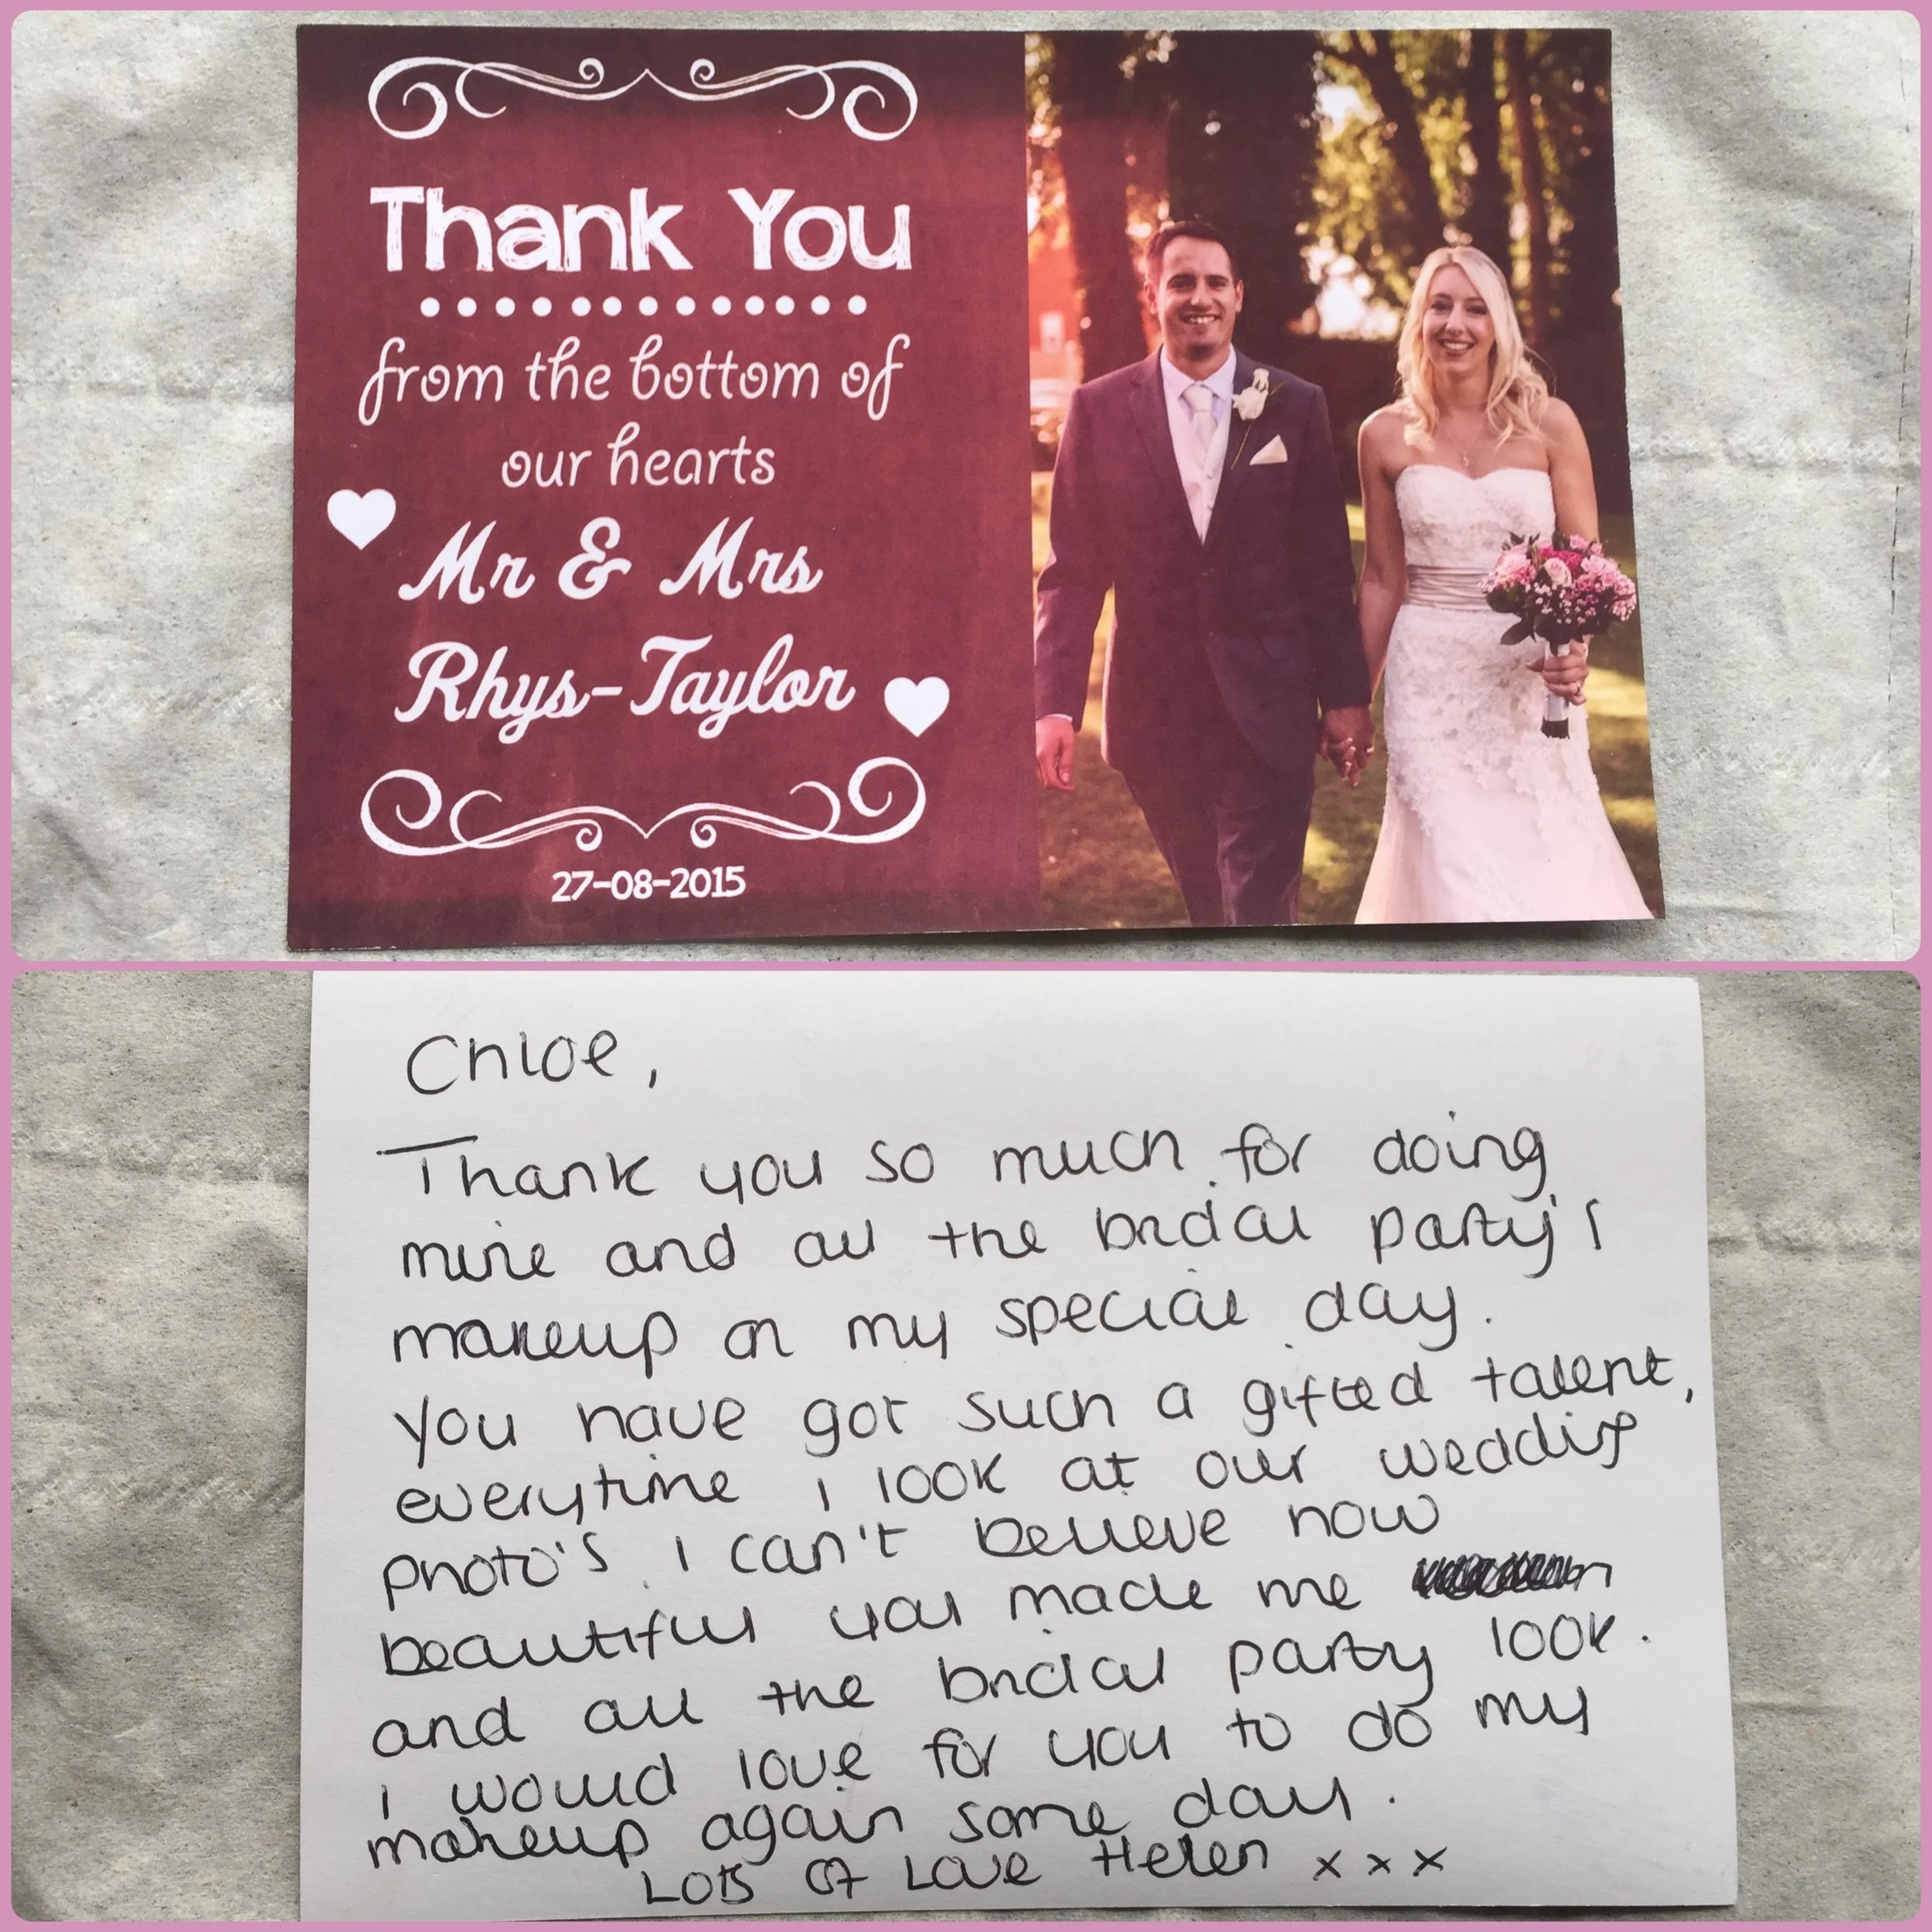 Thank You
from the bottom of
our hearts
Mr & Mrs
Rhys-Taylor
27-08-2015
Chloe,
Thank you so much for doing
mine and all the bridal party's
makeup on my special day.
You have got such a gifted talent,
everytime i look at our wedding
photo's i can't believe how
beautiful you made me
and all the bridal party look.
i would love for you to do my
makeup again some day.
Lots of Love Helen x x x